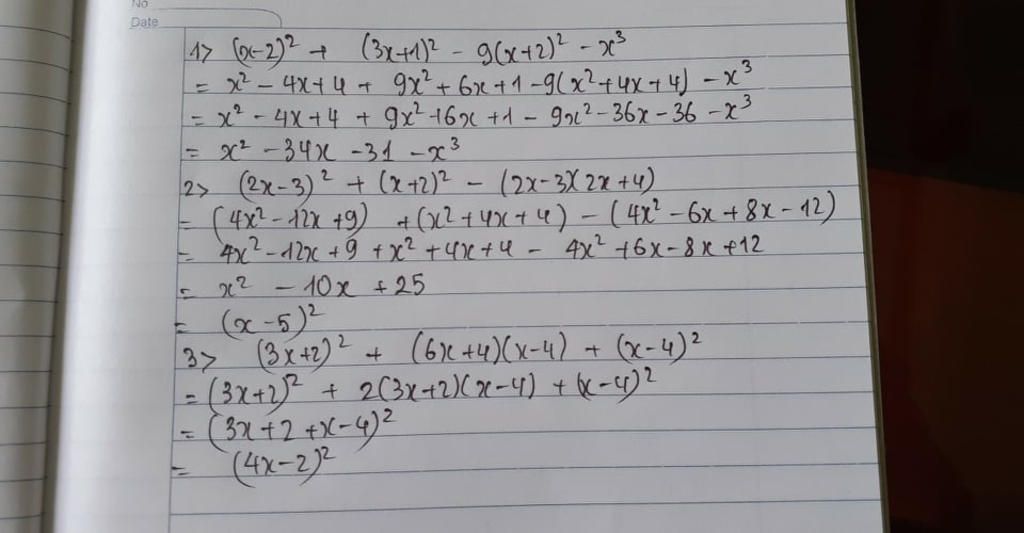 No
Date
1> (x-2)² + (3x+1)² - 9(x+2)² - x³
= x² - 4x+4 + 9x² + 6x +1 -9(x²+4x+4) - x³
= x² - 4x+4 + 9x² +6x +1 - 9x² - 36x - 36 - x³
= x² - 34x - 31 - x³
2> (2x-3)² + (x+2)² - (2x-3)(2x+4)
= (4x² -12x +9) +(x²+4x+4) - (4x² - 6x + 8x - 12)
= 4x² -12x +9 + x² +4x+4 - 4x² +6x - 8x +12
= x² - 10x + 25
= (x-5)²
3> (3x+2)² + (6x+4)(x-4) + (x-4)²
= (3x+2)² + 2(3x+2)(x-4) + (x-4)²
= (3x+2 +x-4)²
= (4x-2)²